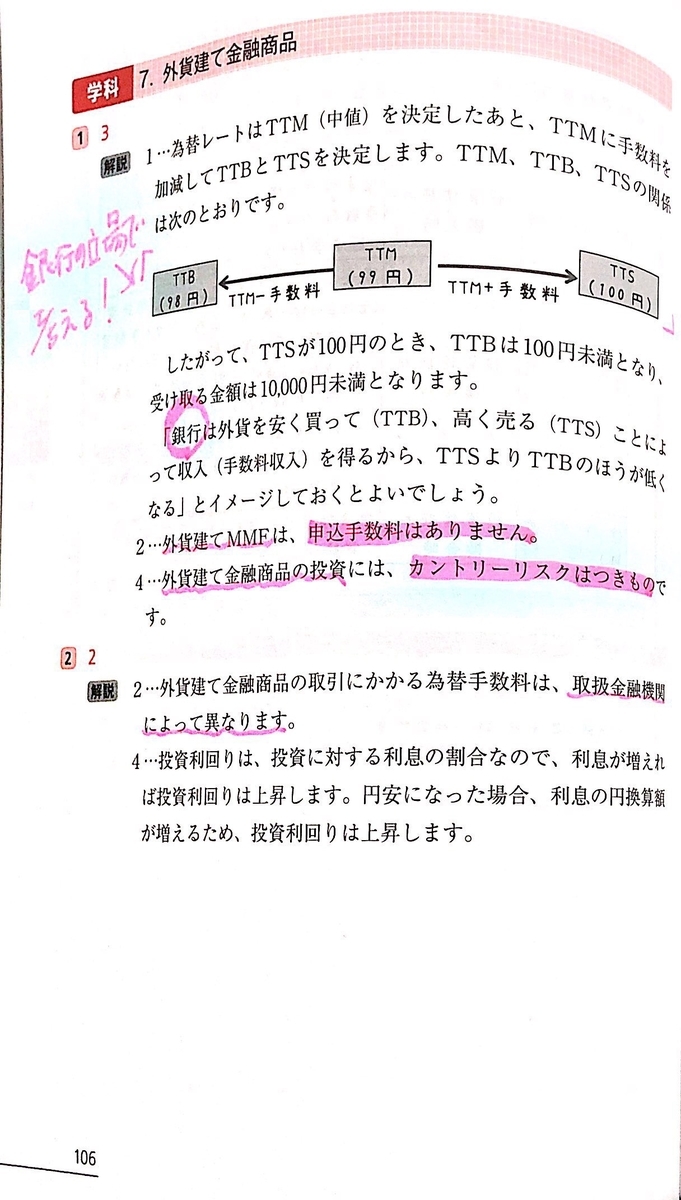 学科 7. 外貨建て金融商品
1 3
解説 1…為替レートはTTM（中値）を決定したあと、TTMに手数料を
加減してTTBとTTSを決定します。TTM、TTB、TTSの関係
は次のとおりです。
銀行の立場で
考える！
TTB
(98円)
TTM−手数料
TTM
(99円)
TTM+手数料
TTS
(100円)
したがって、TTSが100円のとき、TTBは100円未満となり、
受け取る金額は10,000円未満となります。
「銀行は外貨を安く買って（TTB）、高く売る（TTS）ことによ
って収入（手数料収入）を得るから、TTSよりTTBのほうが低く
なる」とイメージしておくとよいでしょう。
2…外貨建てMMFは、申込手数料はありません。
4…外貨建て金融商品の投資には、カントリーリスクはつきもので
す。
2 2
解説 2…外貨建て金融商品の取引にかかる為替手数料は、取扱金融機関
によって異なります。
4…投資利回りは、投資に対する利息の割合なので、利息が増えれ
ば投資利回りは上昇します。円安になった場合、利息の円換算額
が増えるため、投資利回りは上昇します。
106